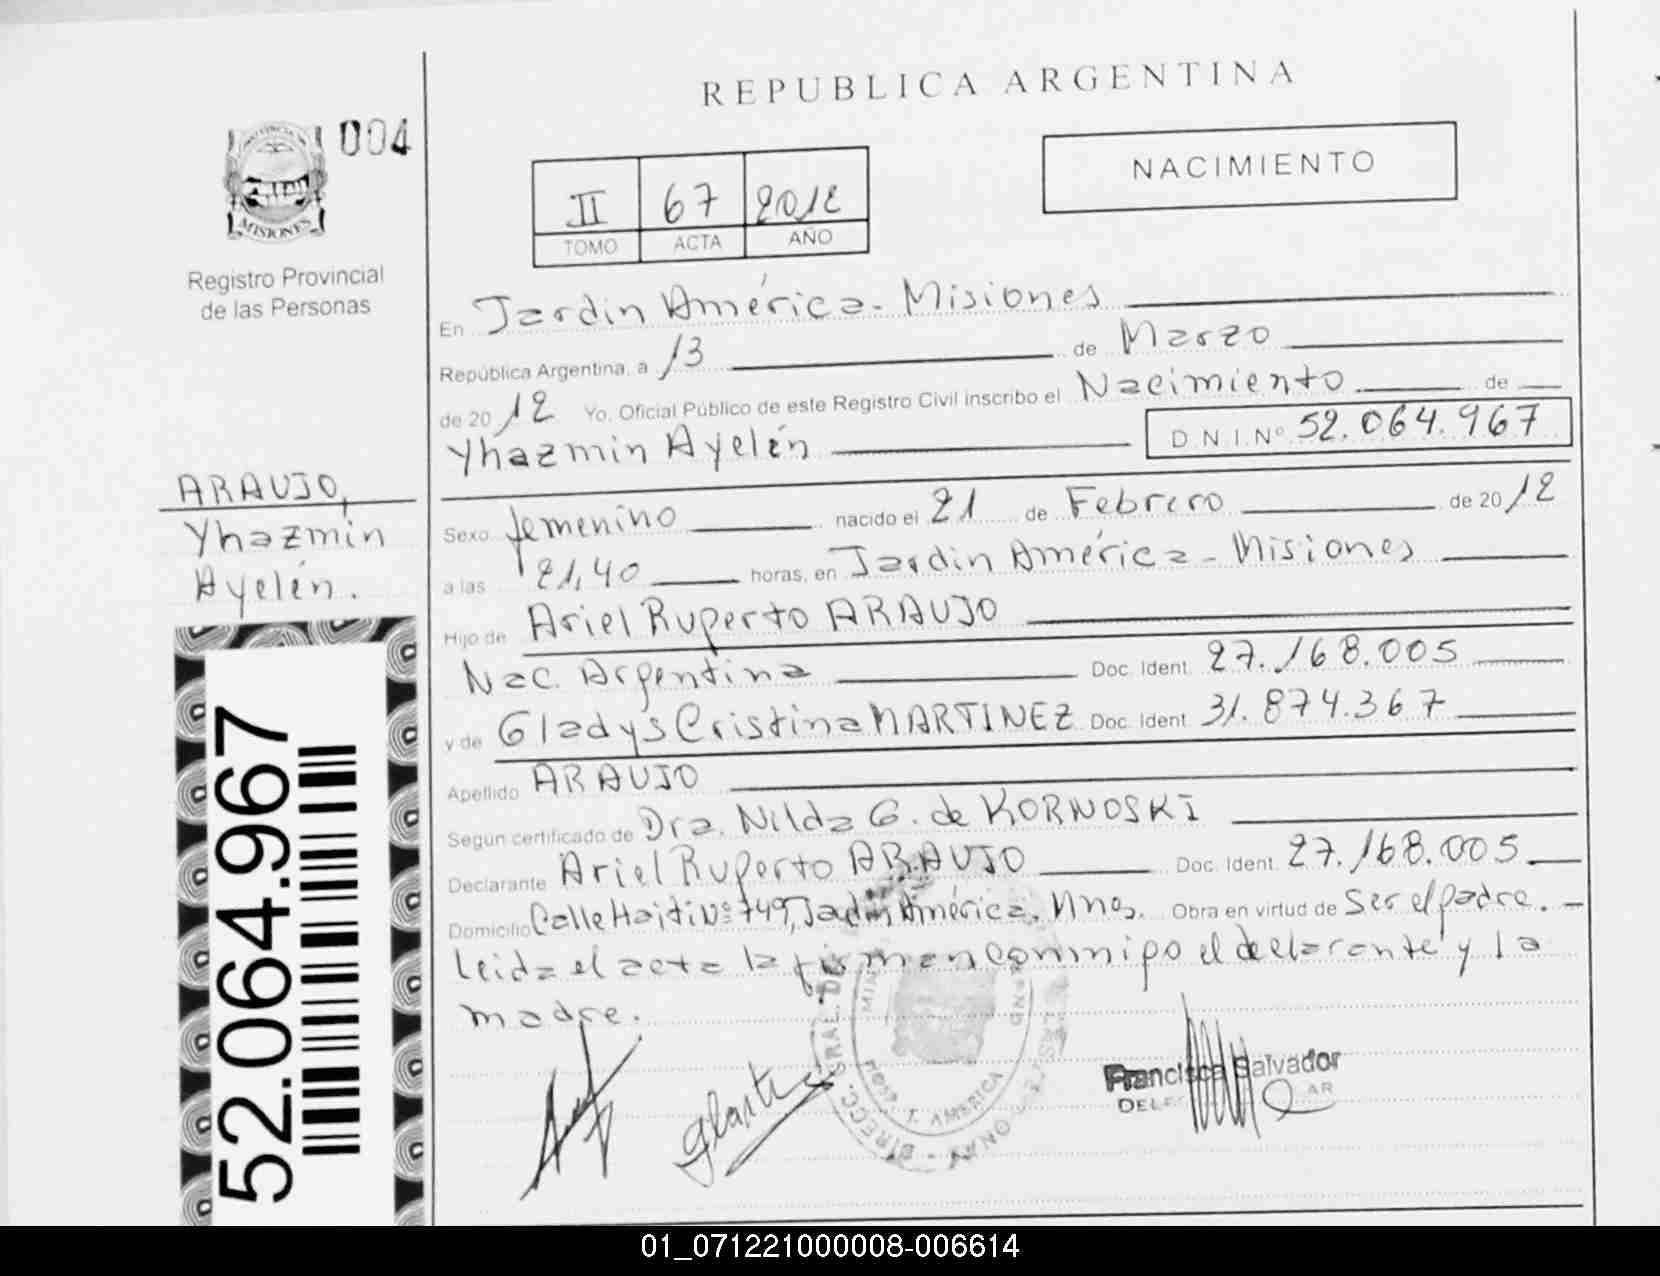 REPUBLICA ARGENTINA
004
NACIMIENTO
II 67 2012
TOMO ACTA AÑO
MISIONES
Registro Provincial
de las Personas
En Jardin América - Misiones
República Argentina, a 13 de Marzo
de 2012 Yo, Oficial Público de este Registro Civil inscribo el Nacimiento de
Yhazmin Ayelén D.N.I.Nº 52.064.967
ARAUJO,
Yhazmin
Ayelén.
Sexo femenino nacido el 21 de Febrero de 2012
a las 21,40 horas, en Jardin América - Misiones
Hijo de Ariel Ruperto ARAUJO
Nac. Argentina Doc. Ident. 27.168.005
y de Gladys Cristina MARTINEZ Doc. Ident. 31.874.367
Apellido ARAUJO
Según certificado de Dra. Nilda G. de KORNOSKI
Declarante Ariel Ruperto ARAUJO Doc. Ident. 27.168.005
Domicilio Calle Haiti Nº 749, Jardin América, Mnes. Obra en virtud de Ser el padre. -
Leida el acta la firman conmigo el declarante y la
madre.
52.064.967
Salvador
AMERICA
01_071221000008-006614